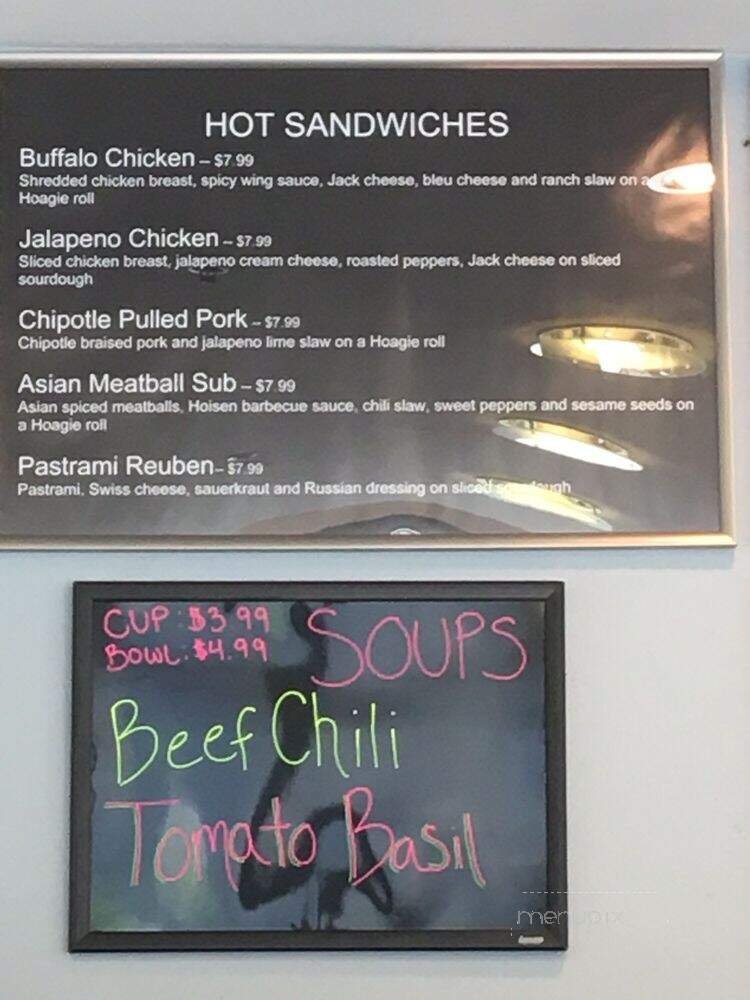 HOT SANDWICHES
Buffalo Chicken – $7.99
Shredded chicken breast, spicy wing sauce, Jack cheese, bleu cheese and ranch slaw on a
Hoagie roll
Jalapeno Chicken – $7.99
Sliced chicken breast, jalapeno cream cheese, roasted peppers, Jack cheese on sliced
sourdough
Chipotle Pulled Pork – $7.99
Chipotle braised pork and jalapeno lime slaw on a Hoagie roll
Asian Meatball Sub – $7.99
Asian spiced meatballs, Hoisen barbecue sauce, chili slaw, sweet peppers and sesame seeds on
a Hoagie roll
Pastrami Reuben– $7.99
Pastrami, Swiss cheese, sauerkraut and Russian dressing on sliced sourdough
CUP: $3.99 SOUPS
BOWL: $4.99
Beef Chili
Tomato Basil
menupix